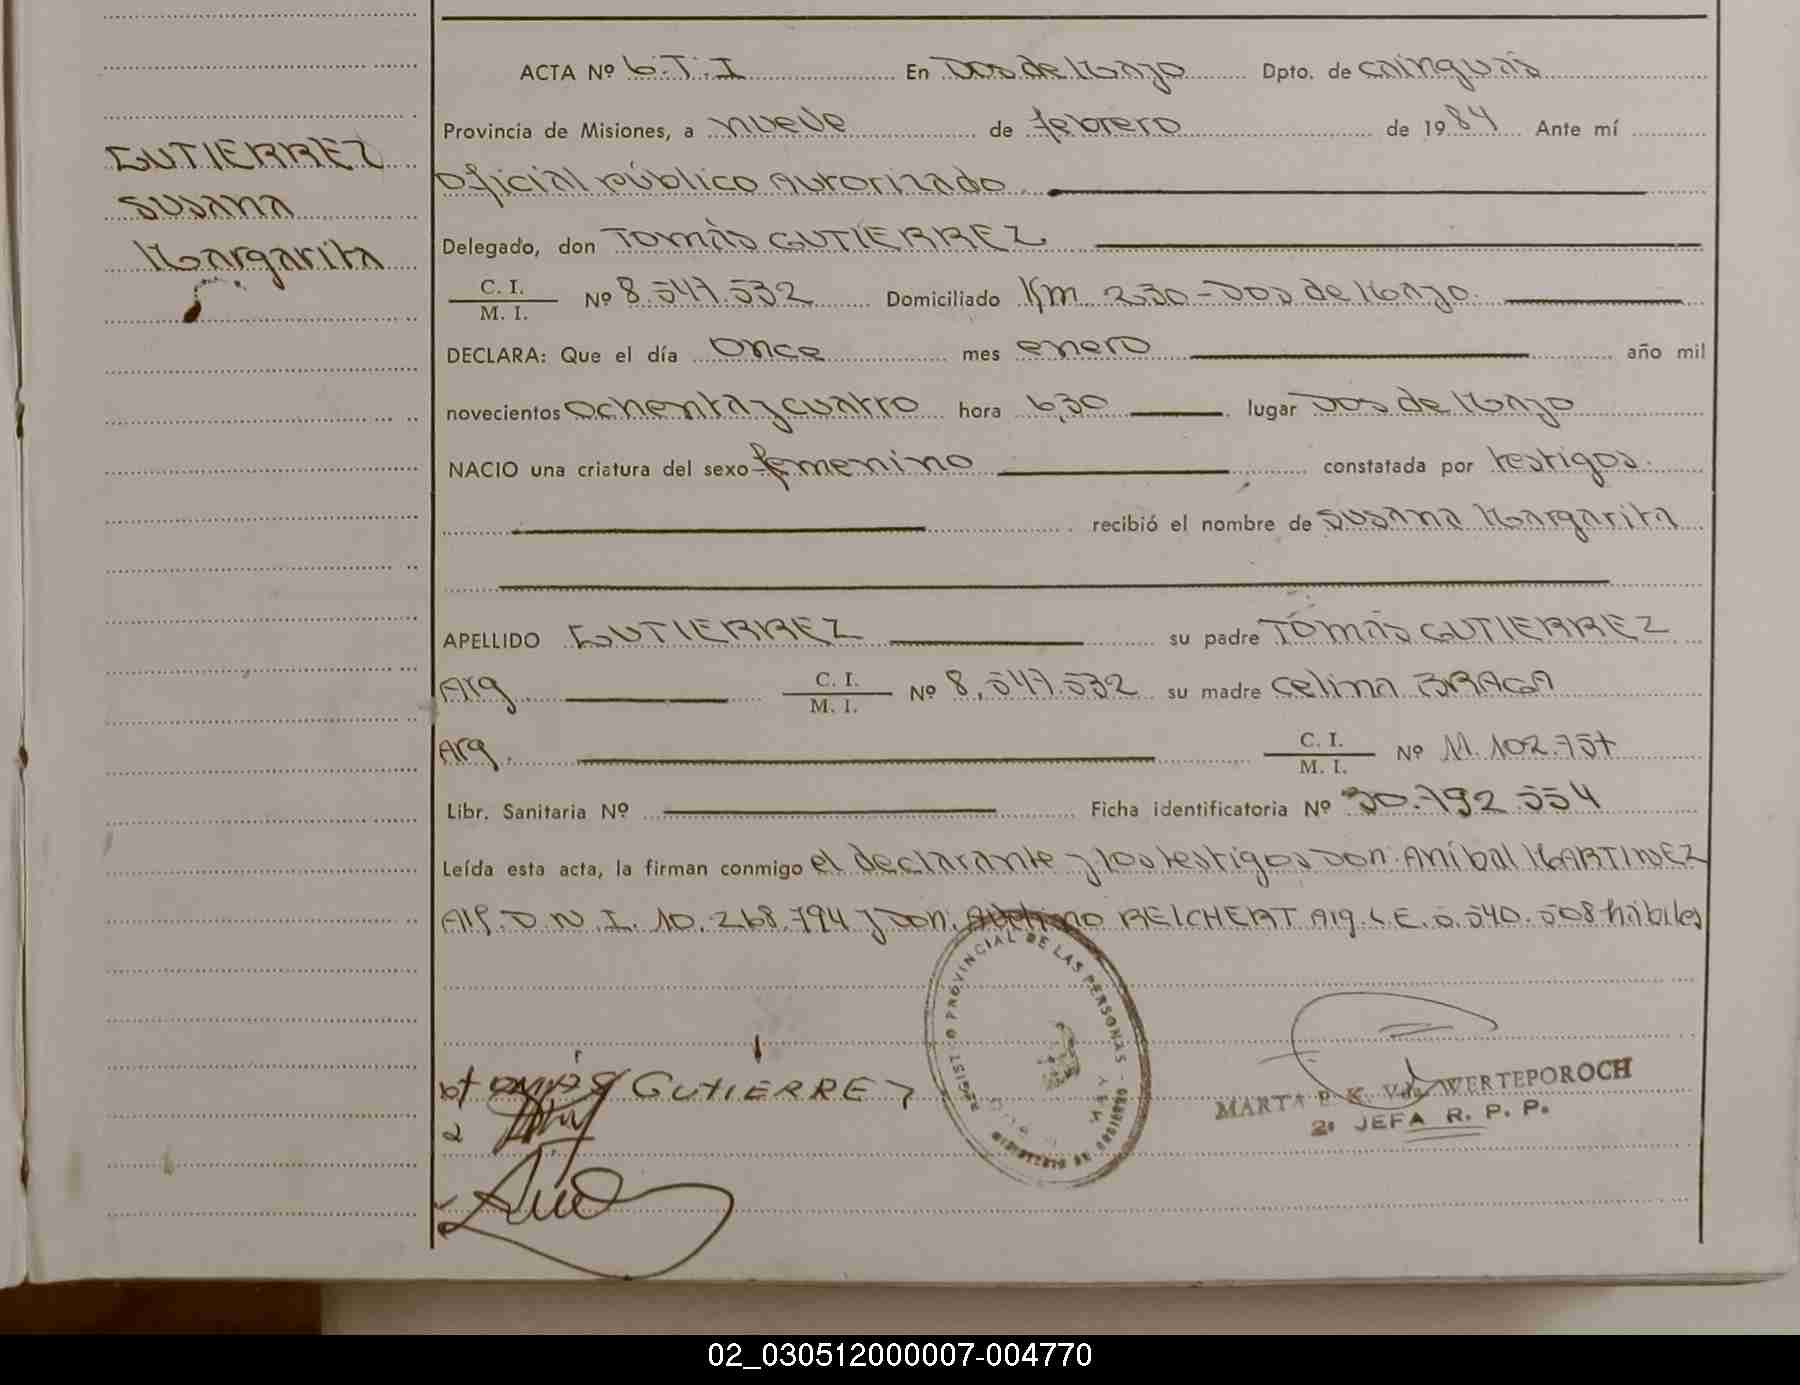 ACTA Nº 6.T.I En Dos de Mayo Dpto. de Cainguás
Provincia de Misiones, a nueve de febrero de 1984 Ante mí
GUTIERREZ
Oficial público Autorizado
SUSANA
Delegado, don Tomás GUTIERREZ
Margarita
C. I.
M. I. Nº 8.547.532 Domiciliado Km 230 - Dos de Mayo.
DECLARA: Que el día Once mes enero año mil
novecientos Ochenta y cuatro hora 6,30 lugar Dos de Mayo
NACIO una criatura del sexo femenino constatada por testigos.
recibió el nombre de SUSANA Margarita
APELLIDO GUTIERREZ su padre TOMÁS GUTIERREZ
Arg C. I.
M. I. Nº 8.547.532 su madre Celina BRAGA
Arg. C. I.
M. I. Nº 11.102.757
Libr. Sanitaria Nº Ficha identificatoria Nº 30.792.554
Leída esta acta, la firman conmigo el declarante y los testigos Don. Aníbal MARTINEZ
Arg. D.N.I. 10.268.794 y Don. REICHERT Arg. L.E. 540.508 hábiles
REGISTRO PROVINCIAL DE LAS PERSONAS
tomás GUTIERREZ
MARTA E. K. Vda. WERTEPOROCH
2ª JEFA R. P. P.
02_030512000007-004770